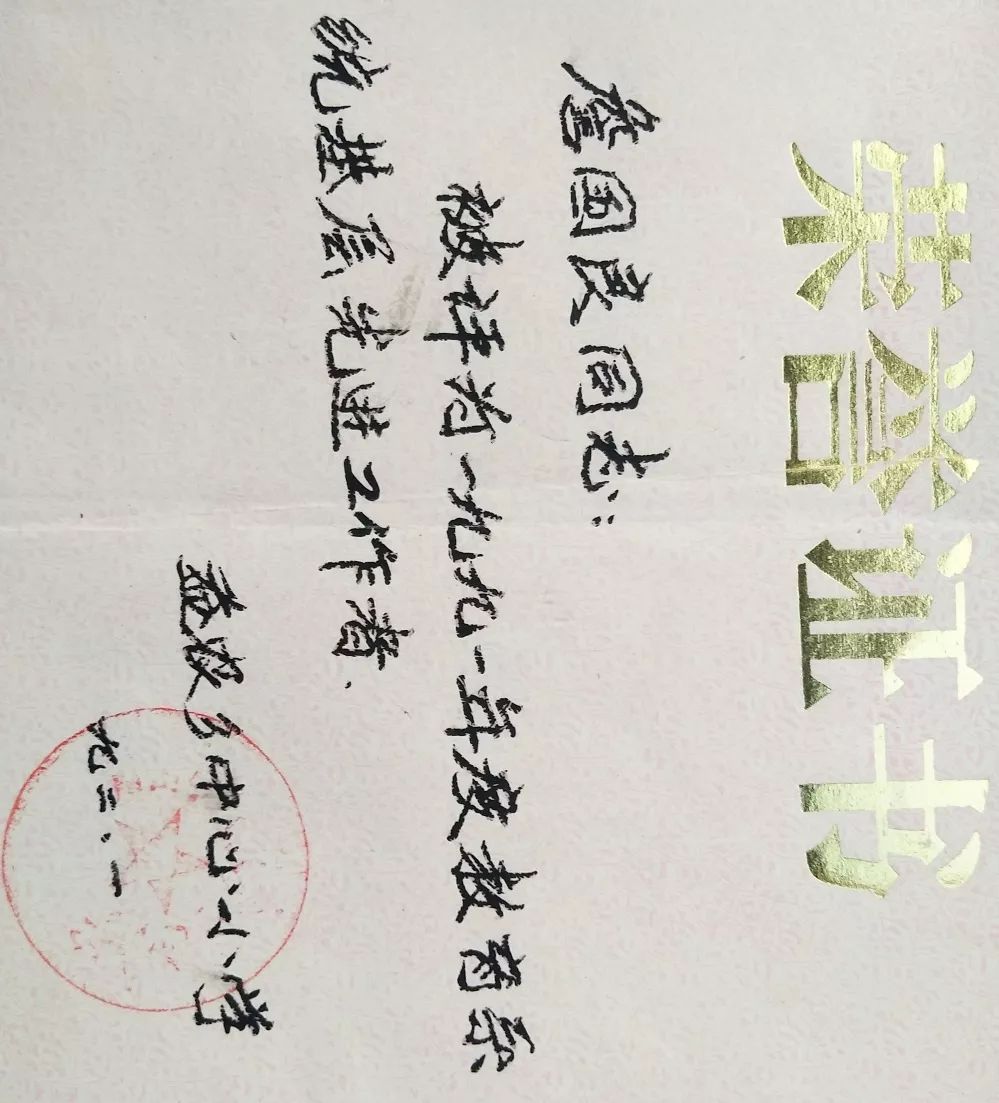 荣誉证书
詹国良同志:
被评为一九九一年度教育系
统基层先进工作者.
益农乡中心小学
九二.一